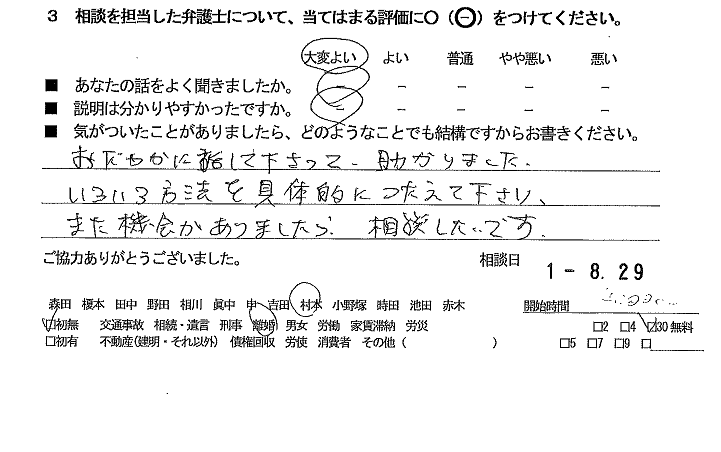 3 相談を担当した弁護士について、当てはまる評価に○(⊖)をつけてください。
大変よい よい 普通 やや悪い 悪い
■ あなたの話をよく聞きましたか。 － － － － －
■ 説明は分かりやすかったですか。 － － － － －
■ 気がついたことがありましたら、どのようなことでも結構ですからお書きください。
おだやかに話して下さって、助かりました。
いろいろ方法を具体的につたえて下さい、
また機会がありましたら 相談したいです。
ご協力ありがとうございました。 相談日 1-8.29
森田 榎本 田中 野田 相川 眞中 申 吉田 村本 小野塚 時田 池田 赤木 開始時間
☑初無 交通事故 相続・遺言 刑事 離婚 男女 労働 家賃滞納 労災 □2 □4 ☑30無料
□初有 不動産(建明・それ以外) 債権回収 労使 消費者 その他( ) □5 □7 □9 □